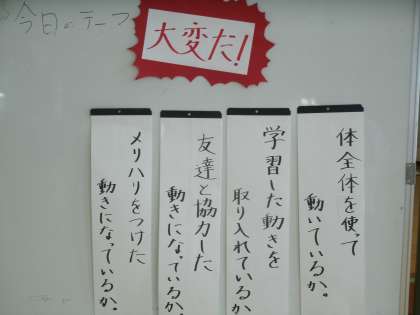 今日のテーマ
大変だ!
体全体を使って
動いているか。
学習した動きを
取り入れているか
友達と協力した
動きになっているか。
メリハリをつけた
動きになっているか。